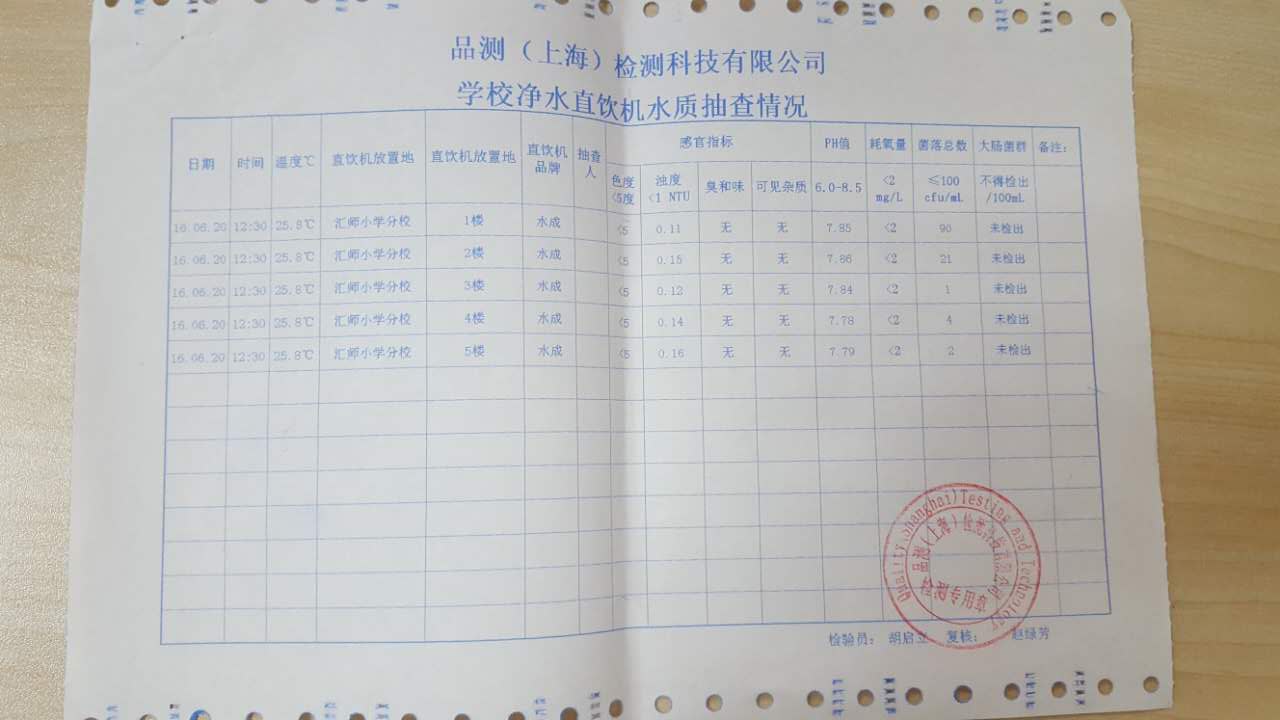 品测（上海）检测科技有限公司
学校净水直饮机水质抽查情况
日期 时间 温度℃ 直饮机放置地 直饮机放置地 直饮机品牌 抽查人 感官指标 PH值 耗氧量 菌落总数 大肠菌群 备注：
色度<5度 浊度<1 NTU 臭和味 可见杂质 6.0-8.5 <2 mg/L ≤100 cfu/mL 不得检出/100mL
16.06.20 12:30 25.8℃ 汇师小学分校 1楼 水成 <5 0.11 无 无 7.85 <2 90 未检出
16.06.20 12:30 25.8℃ 汇师小学分校 2楼 水成 <5 0.15 无 无 7.86 <2 21 未检出
16.06.20 12:30 25.8℃ 汇师小学分校 3楼 水成 <5 0.12 无 无 7.84 <2 1 未检出
16.06.20 12:30 25.8℃ 汇师小学分校 4楼 水成 <5 0.14 无 无 7.78 <2 4 未检出
16.06.20 12:30 25.8℃ 汇师小学分校 5楼 水成 <5 0.16 无 无 7.79 <2 2 未检出
Quality(Shanghai)Testing and Technology
品测（上海）检测科技有限公司
检测专用章
检验员： 胡启立 复核： 赵绿芳